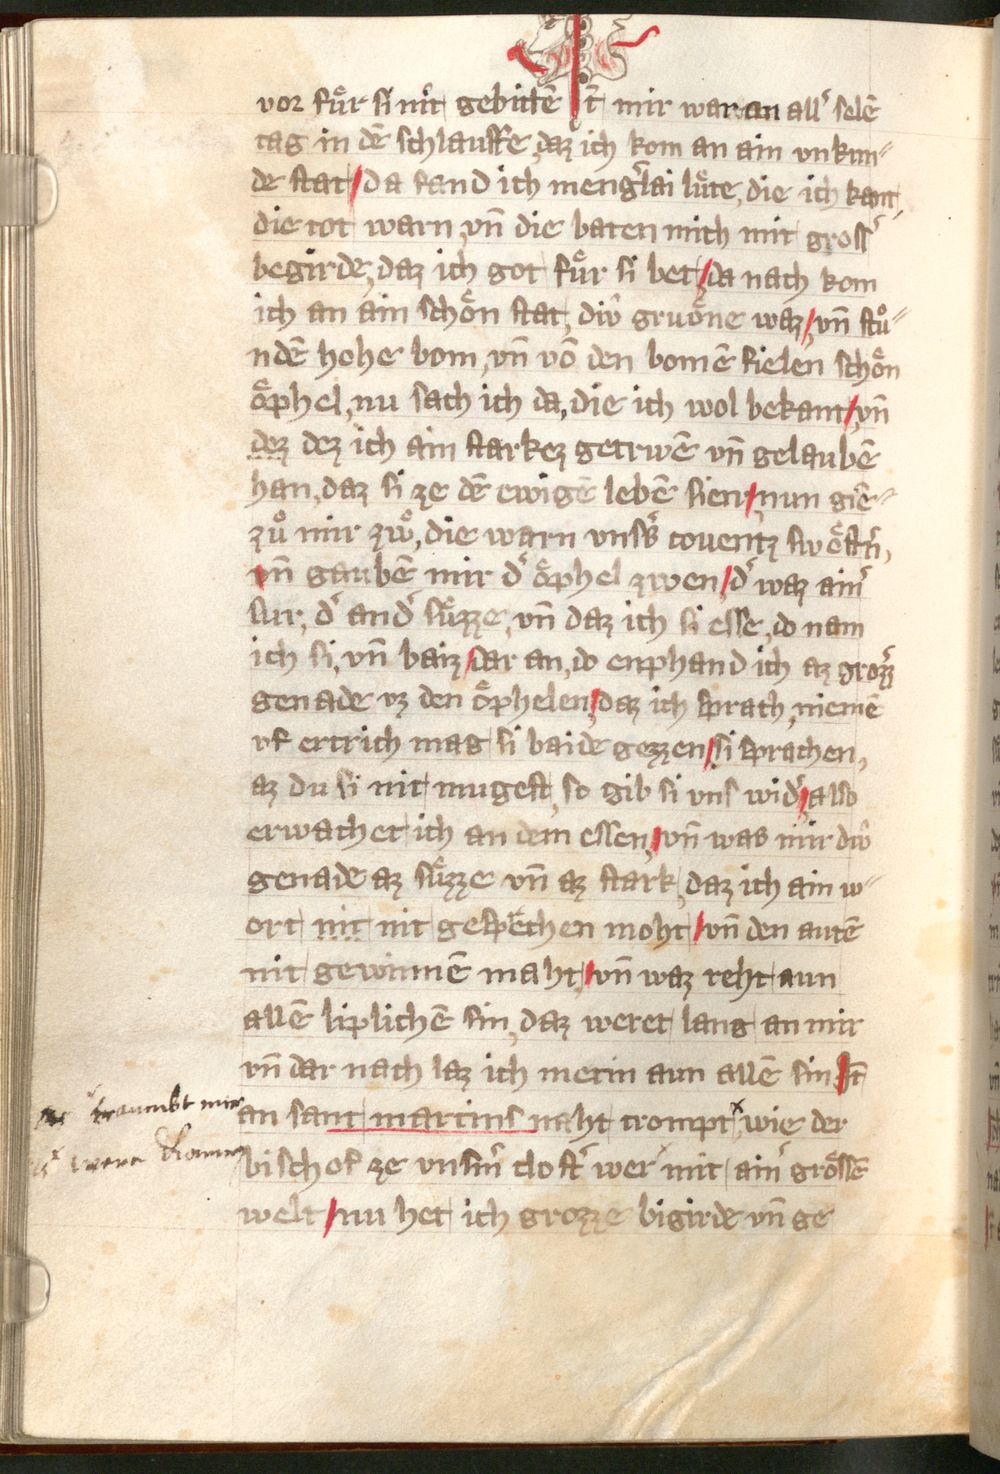 vor fuͤr si nit gebittē It̄ mir war an all᾽ selē
tag in dē schlauffe, daz ich kom an ain vnkun⸗
de stat / da fand ich meng᾽lai luͤte, die ich kant,
die tot warn, vn̄ die baten mich mit gross᾽
begirde, daz ich got fuͤr si bet / da nach kom
ich an ain schoͤn stat, diw̑ gruoͤne waz / vn̄ stuͦ⸗
ndē hohe bom, vn̄ vō den bomē fielen schoͤn
oͤphel, nu sach ich da, die ich wol bekant / vn̄
dez dez ich ain starkez getrwē vn̄ gelaubē
han, daz si ze dē ewigē lebē sien / nun giē⸗
zuͦ mir zwͦ, die warn vns᾽s couentz swoͤst᾽n,
vn̄ gaubē mir d᾽ oͤphel zwen / d᾽ waz ain᾽
sur, d᾽ and᾽ suͤzze, vn̄ daz ich si esse, do nam
ich si, vn̄ baiz / dar an, do enphand ich az grozz᾽
genade vz den oͤphelen / daz ich sprach, niemē
vf ertrich mag si baide gezzen / si sprachen,
az du si nit mugest, so gib si vns wid᾽ / also
erwachet ich an dem essen, / vn̄ was mir diw̑
genade az suͤzze vn̄ az stark, daz ich ain w⸗
ort nit nit gesprechen moht / vn̄ den autē
nit gewinnē maht / vn̄ waz reht aun
allē liplichē sin, daz weret lang an mir
vn̄ dar nach laz ich metin aun allē sin It̄
an sant martins naht trompt, wie der
bischof ze vnsm̄ clost᾽ wer mit ain᾽ groͤssē
welt / nu het ich grozze bigirde vn̄ ge
traumbt mir